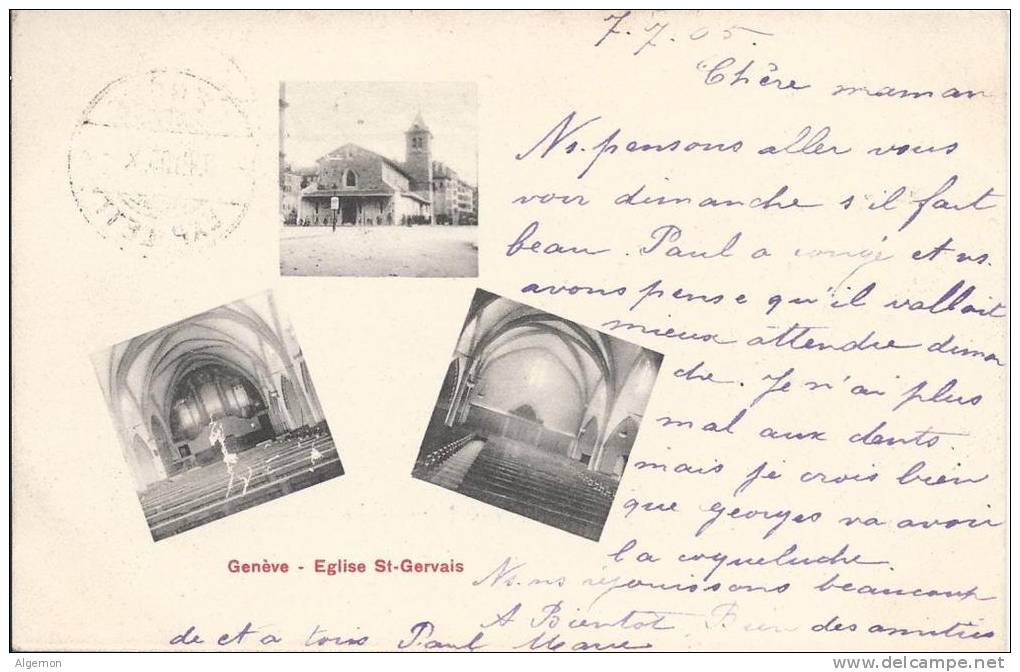 7.7.05.
Chère maman
Ns. pensons aller vous
voir dimanche s'il fait
beau. Paul a congé et ns.
avons pensé qu'il vallait
mieux attendre diman
che. Je n'ai plus
mal aux dents
mais je crois bien
que georges va avoir
la coqueluche.
Ns. ns réjouissons beaucoup
A Bientot. Bien des amitiés
de et a tous Paul Marie
Genève - Eglise St-Gervais
Algemon
www.delcampe.net